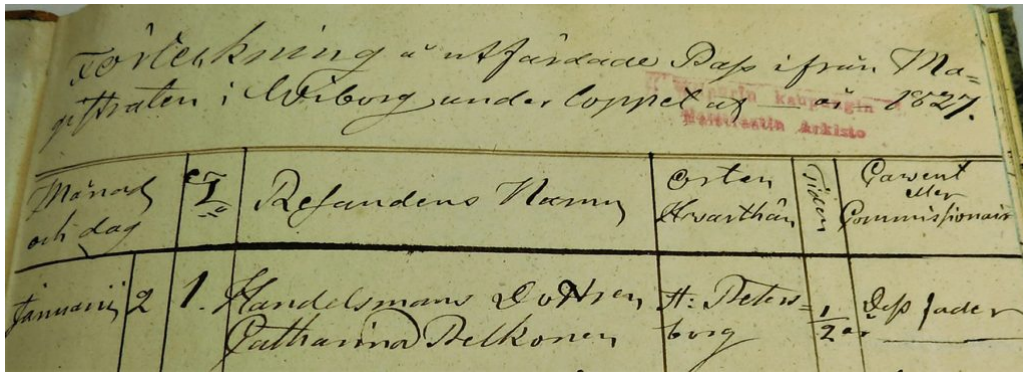 Förteckning å utfärdade Pass ifrån Ma=
gistraten i Wiborg under loppet af år 1827.
Wiipurin kaupungin
Maistraatin Arkisto
Månad och dag
No
Resandens Namn
Orten Hvarthän
Tiden
Cavent eller Commissionair
Januarii 2
1.
Handelsmans Dottren
Catharina Pelkonen
St: Peters=
borg
1/2 år
Dess fader